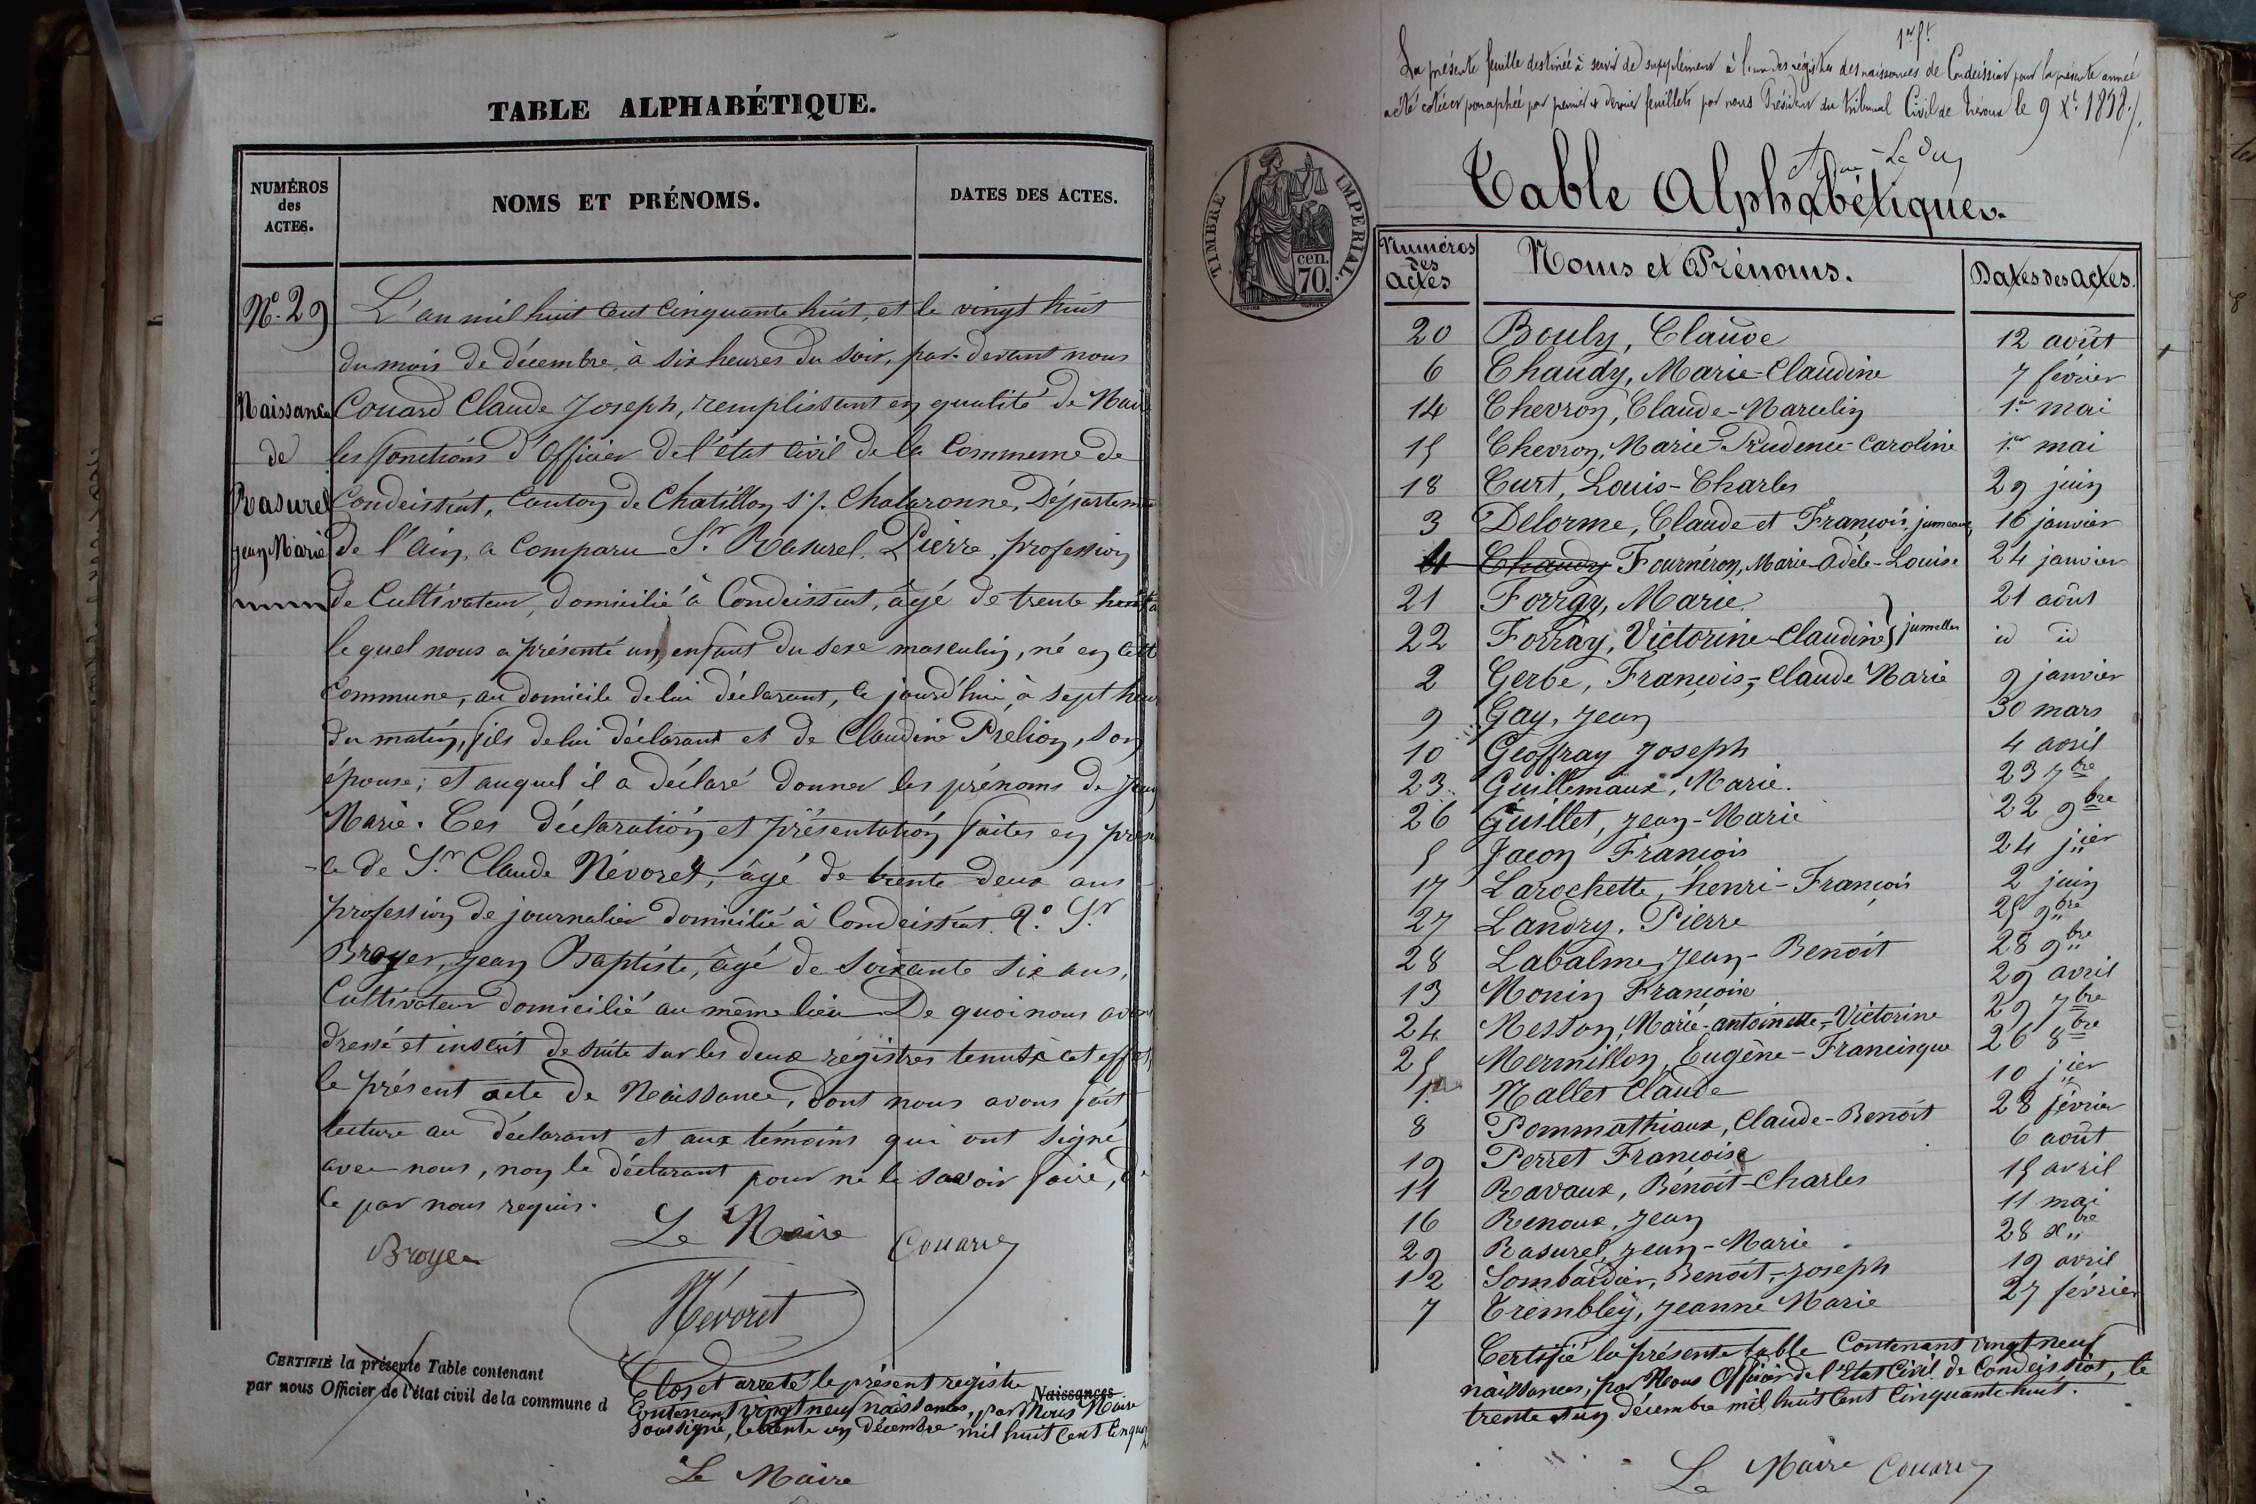 TABLE ALPHABÉTIQUE.
NUMÉROS
des
ACTES.
NOMS ET PRÉNOMS.
DATES DES ACTES.
N° 29
Naissance
de
Rasurel
Jean Marie
L'an mil huit cent cinquante huit, et le vingt huit
du mois de décembre, à six heures du soir, par-devant nous
Couard Claude Joseph, remplissant en qualité de Maire
les fonctions d'Officier de l'état civil de la Commune de
Condeissiat, Canton de Chatillon s/. Chalaronne, Départeme
de l'Ain, a comparu Sr. Rasurel, Pierre, profession
de Cultivateur, domicilié à Condeissiat, âgé de trente
lequel nous a présenté un enfant du sexe masculin, né en cette
commune, au domicile de lui déclarant, ce jourd'hui, à sept heur
du matin, fils de lui déclarant et de Claudine Prelion, son
épouse; et auquel il a déclaré donner les prénoms de Jean
Marie. Ces déclaration et présentation faites en présen
ce de Sr. Claude Névoret, âgé de trente deux ans
profession de journalier domicilié à Condeissiat 2° Sr
Broyer, Jean Baptiste, âgé de soixante six ans,
Cultivateur domicilié au même lieu De quoi nous avons
dressé et inscrit de suite sur les deux régistres tenus à cet effet,
le présent acte de Naissance, dont nous avons fait
lecture au déclarant et aux témoins qui ont signé
avec nous, non le déclarant pour ne le savoir faire, de
ce par nous requis.
Le Maire
Broyer
Couard
Névoret
CERTIFIÉ la présente Table contenant
Naissances
par nous Officier de l'état civil de la commune d
Clos et arreté le présent registre
Contenant vingt neuf naissances, par Nous Maire
Soussigné, le trente un décembre mil huit cent Cinqua
Le Maire
1er ft
La présente feuille destinée à servir de supplément à l'un des régistres des naissances de Condeissiat pour la présente année
a été cotée et paraphée par premier et dernier feuillets par nous Président du tribunal Civil de Trévoux le 9 Xb. 1858.
TIMBRE IMPERIAL.
cen.
70.
Table Alphabétique.
Numéros
des
Actes
Noms et Prénoms.
Dates des Actes.
20 Bouly, Claude 12 août
6 Chaudy, Marie-Claudine 7 février
14 Chevron, Claude-Marcelin 1er mai
15 Chevron, Marie-Prudence-Caroline 1er mai
18 Curt, Louis-Charles 29 juin
3 Delorme, Claude et François, jumeaux 16 janvier
4 Chaudy Fournéron, Marie-Adèle-Louise 24 janvier
21 Forray, Marie 21 août
22 Forray, Victorine-Claudine } jumelles id id
2 Gerbe, François-Claude Marie 9 janvier
9 Gay, Jean 30 mars
10 Geoffray Joseph 4 avril
23 Guillemaux, Marie. 23 7bre
26 Guillet, Jean-Marie 22 9bre
5 Jacon François 24 jier
17 Larochette, henri-François 2 juin
27 Landry, Pierre 25 9bre
28 Labalme, Jean-Benoit 28 9bre
13 Monin Françoise 29 avril
24 Messon, Marie-antoinette-Victorine 29 7bre
25 Mermillon, Eugène-Francisque 26 8bre
1 Nallet Claude 10 jier
8 Pommathiaux, Claude-Benoit 28 février
19 Perret Françoise 6 août
11 Ravaux, Bénoit-Charles 15 avril
16 Renoux, Jean 11 mai
29 Rasurel, Jean-Marie 28 xbre
12 Sombardier, Benoit-Joseph 19 avril
7 Trembley, Jeanne Marie 27 février
Certifié la présente table Contenant vingt neuf
naissances, par Nous Officier de l'Etat Civil de Condeissiat, le
trente et un décembre mil huit Cent Cinquante huit.
Le Maire Couard